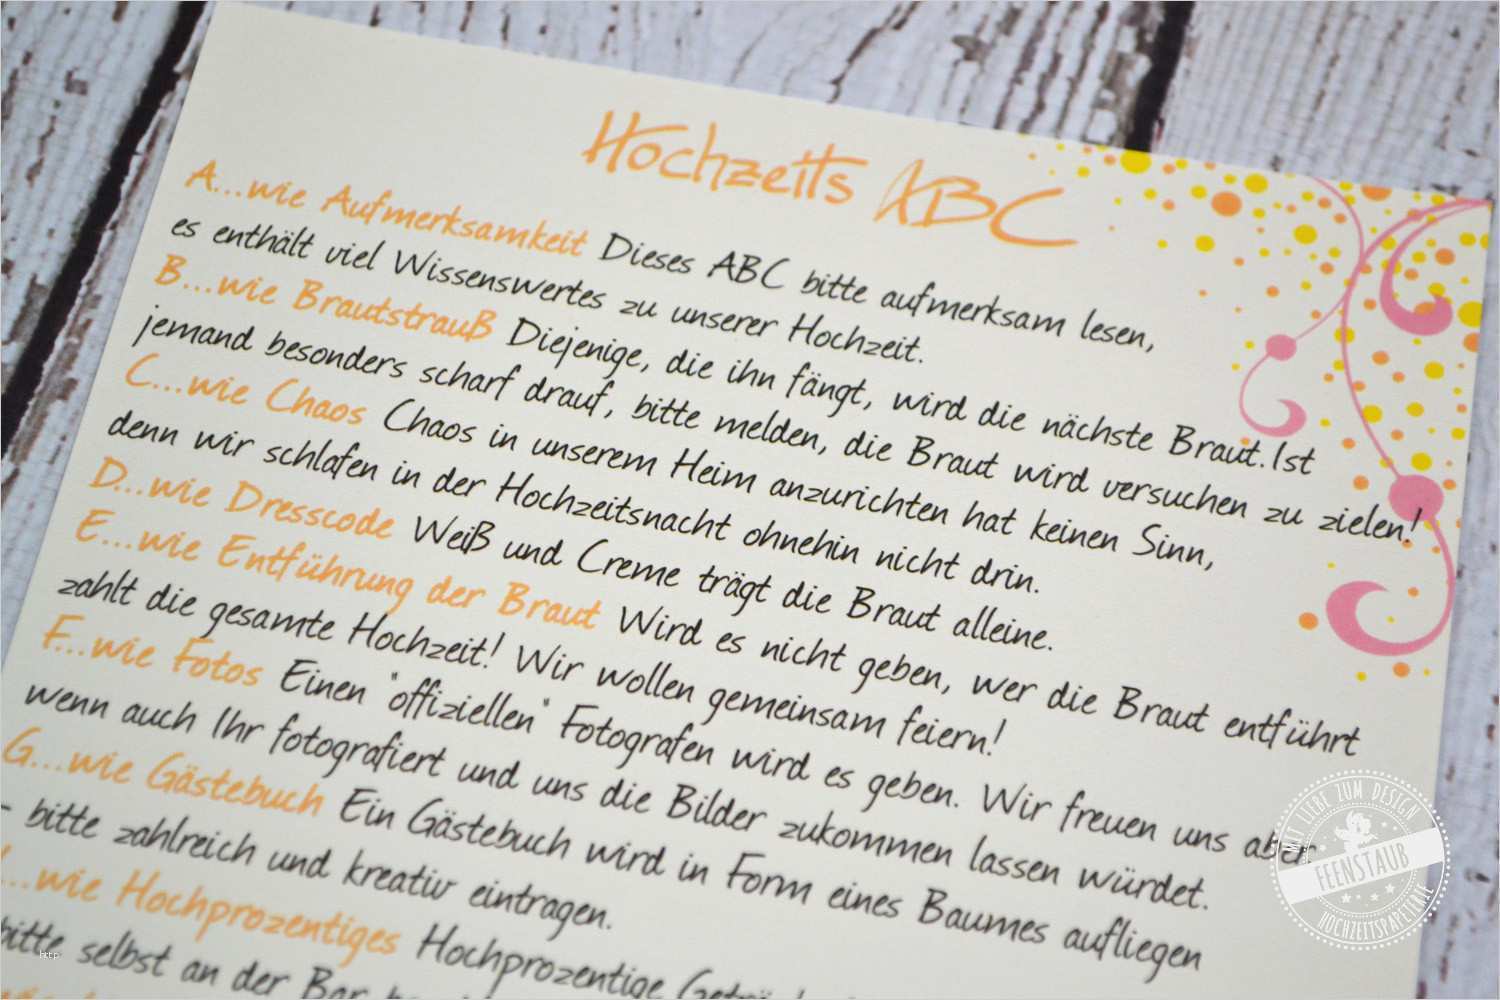 Hochzeits ABC
A...wie Aufmerksamkeit Dieses ABC bitte aufmerksam lesen,
es enthält viel Wissenswertes zu unserer Hochzeit.
B...wie Brautstrauß Diejenige, die ihn fängt, wird die nächste Braut.Ist
jemand besonders scharf drauf, bitte melden, die Braut wird versuchen zu zielen!
C...wie Chaos Chaos in unserem Heim anzurichten hat keinen Sinn,
denn wir schlafen in der Hochzeitsnacht ohnehin nicht drin.
D...wie Dresscode Weiß und Creme trägt die Braut alleine.
E...wie Entführung der Braut Wird es nicht geben, wer die Braut entführt
zahlt die gesamte Hochzeit! Wir wollen gemeinsam feiern!
F...wie Fotos Einen "offiziellen" Fotografen wird es geben. Wir freuen uns aber
wenn auch Ihr fotografiert und uns die Bilder zukommen lassen würdet.
G...wie Gästebuch Ein Gästebuch wird in Form eines Baumes aufliegen
- bitte zahlreich und kreativ eintragen.
...wie Hochprozentiges Hochprozentige
bitte selbst an der Bar
MIT LIEBE ZUM DESIGN
FEENSTAUB
HOCHZEITSPAPETERIE
http